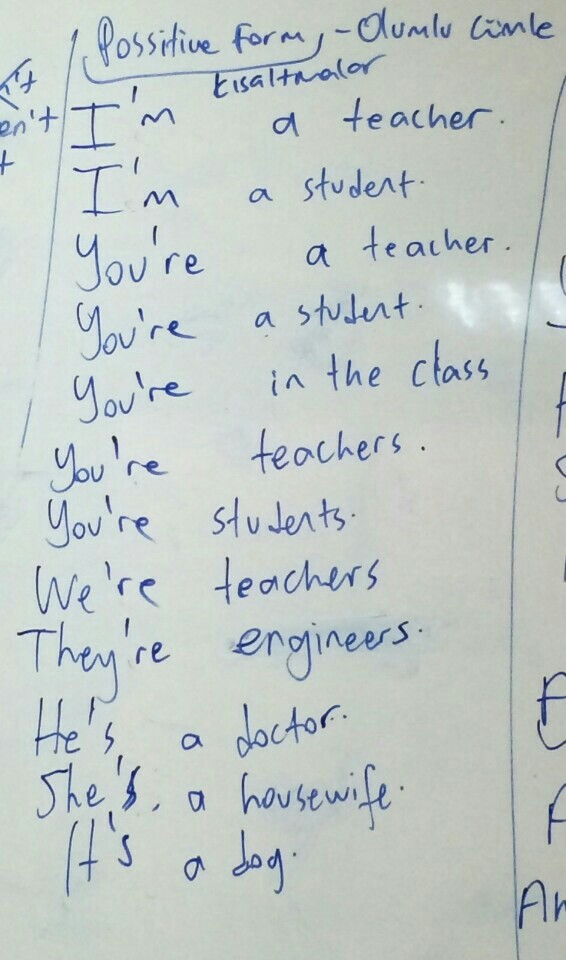 Possitive Form, - Olumlu Cümle
kısaltmalar
I'm a teacher.
I'm a student.
You're a teacher.
You're a student.
You're in the class
You're teachers.
You're students.
We're teachers
They're engineers.
He's a doctor.
She's a housewife.
It's a dog.